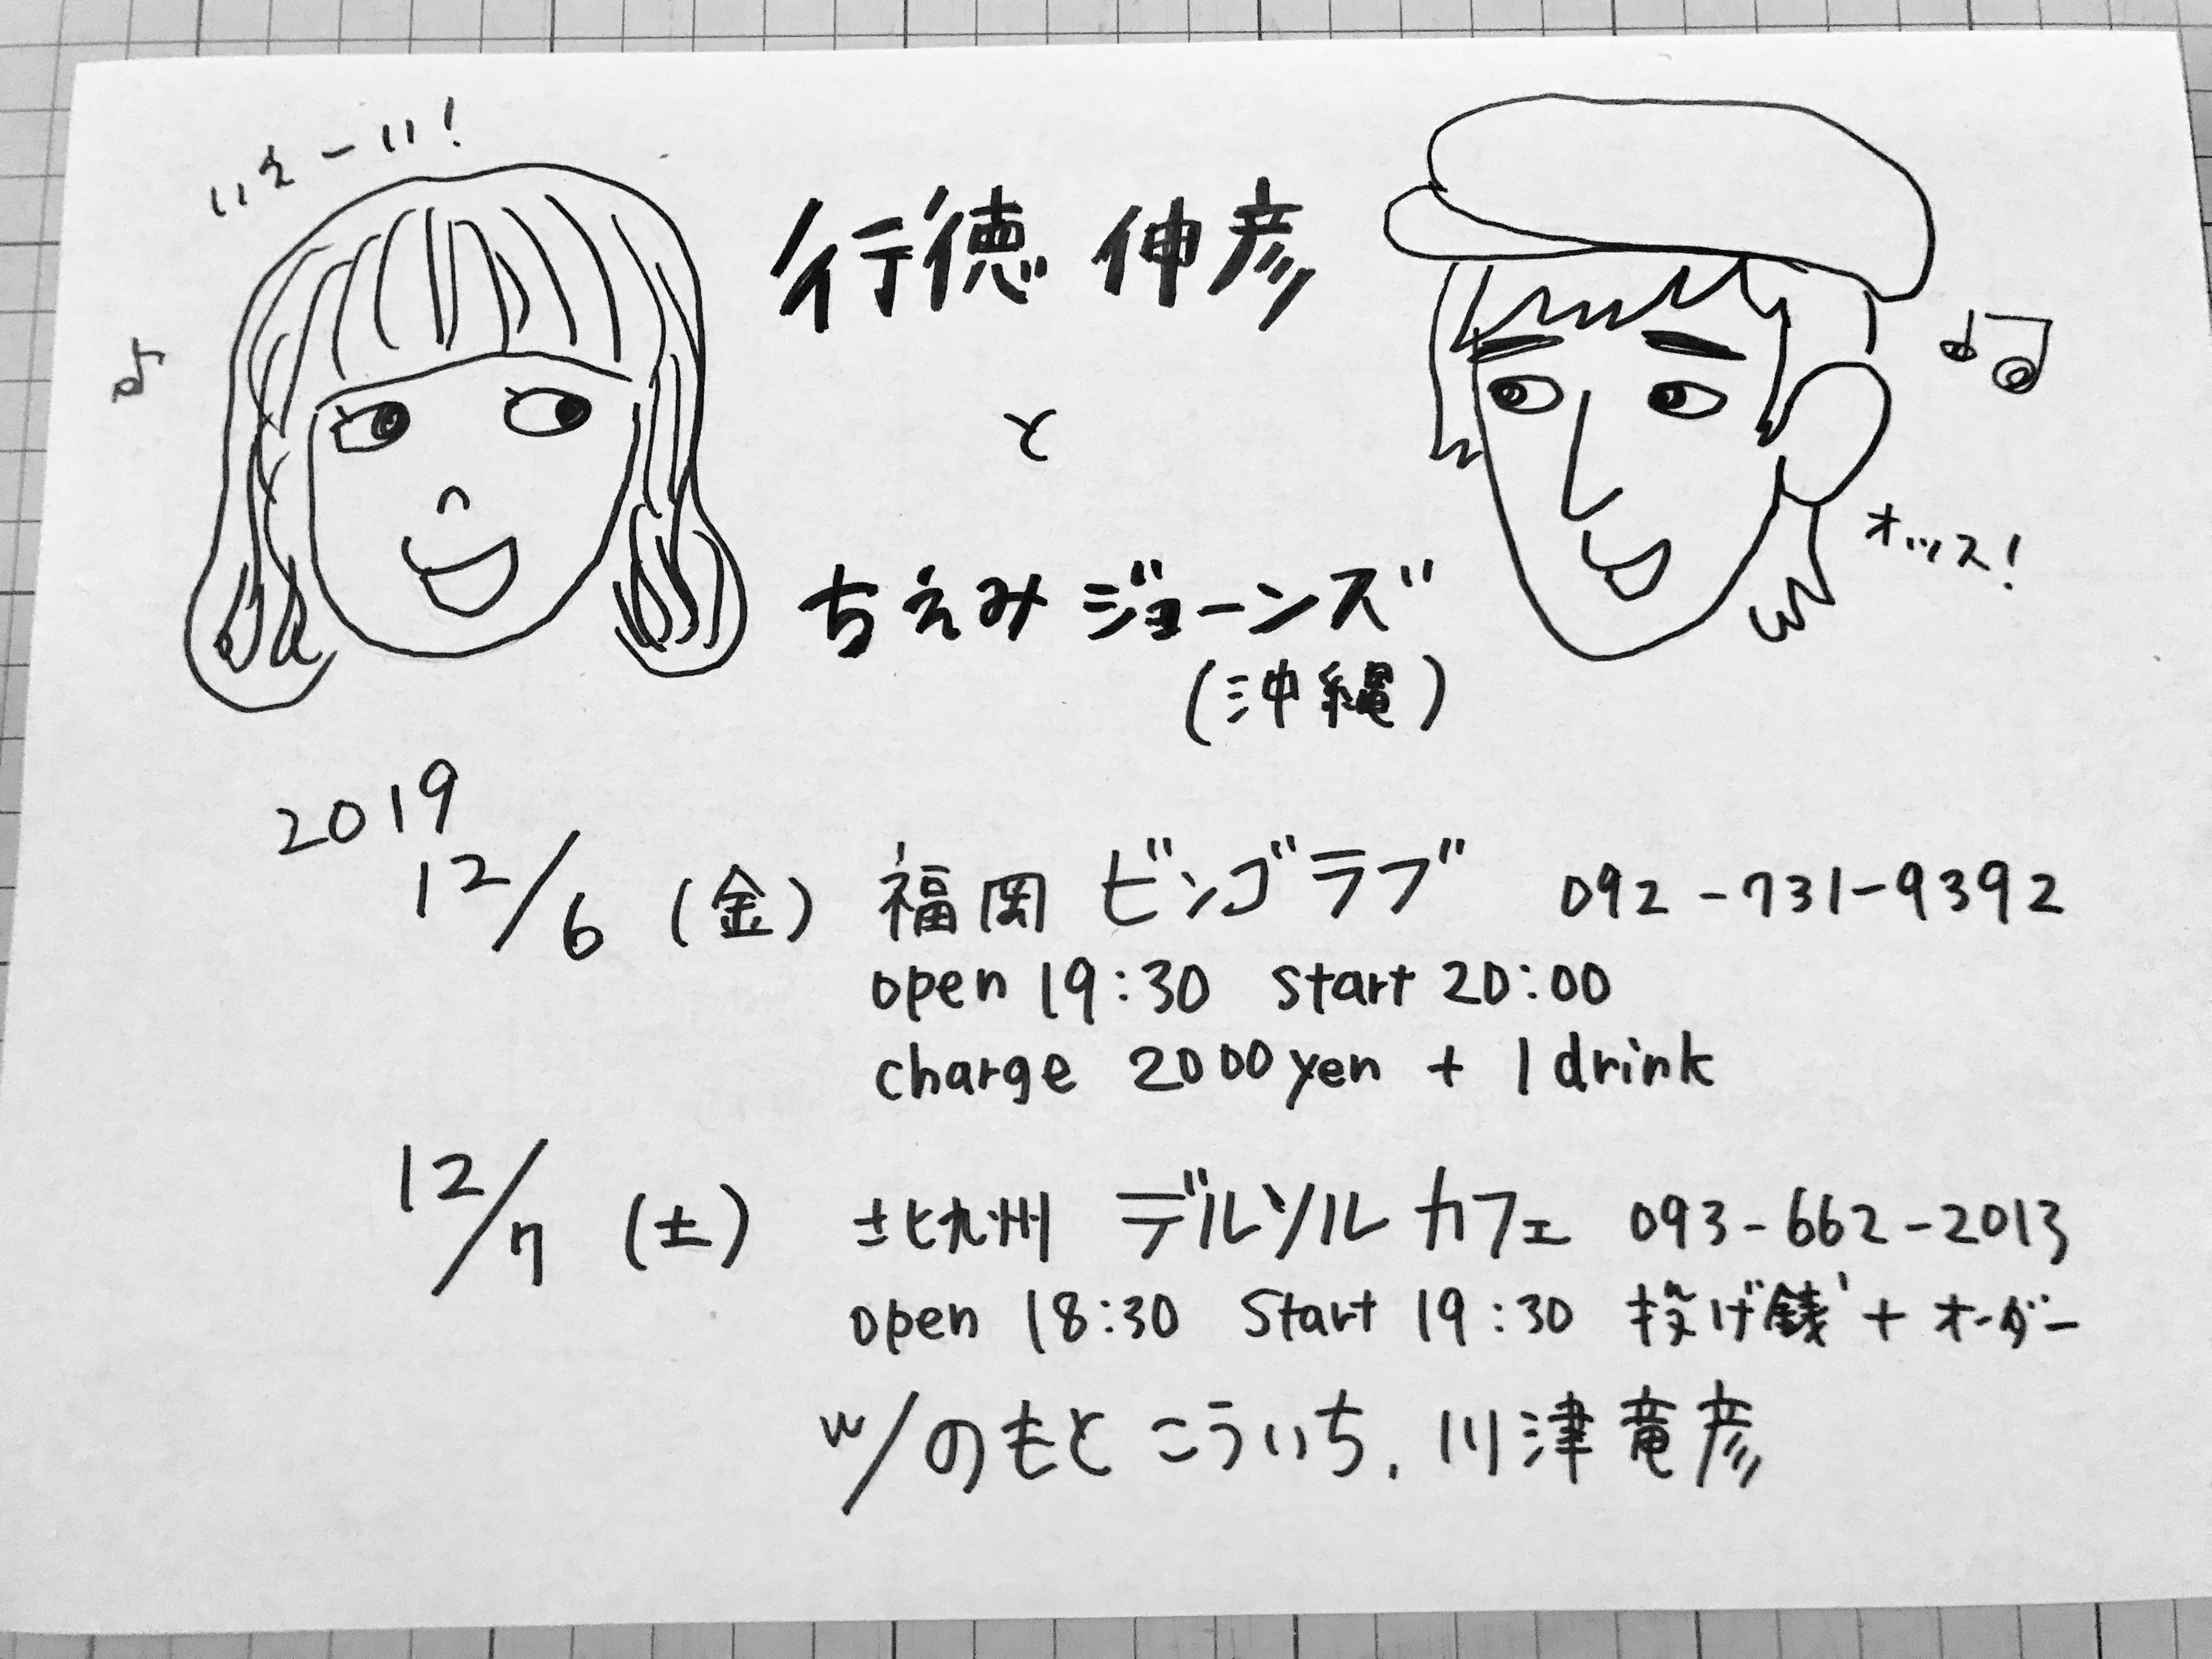 いえーい!
行徳 伸彦
♪
と
オッス!
ちえみジョーンズ
(沖縄)
2019
12/6 (金) 福岡 ビンゴラブ 092-731-9392
open 19:30 start 20:00
charge 2000yen + 1drink
12/7 (土) 北九州 デルソルカフェ 093-662-2013
open 18:30 Start 19:30 投げ銭 + オーダー
w/のもとこういち, 川津竜彦